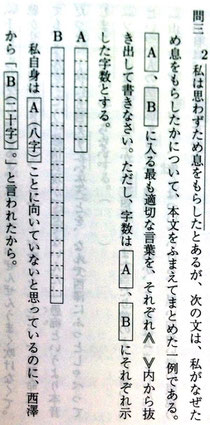 問三　2私は思わずため息をもらしたとあるが、次の文は、私がなぜた
め息をもらしたかについて、本文をふまえてまとめた一例である。
A、Bに入る最も適切な言葉を、それぞれ≪ ≫内から抜
き出して書きなさい。ただし、字数はA、Bにそれぞれ示
した字数とする。
A
B
私自身はA（八字）ことに向いていないと思っているのに、西澤
から「B（二十字）。」と言われたから。